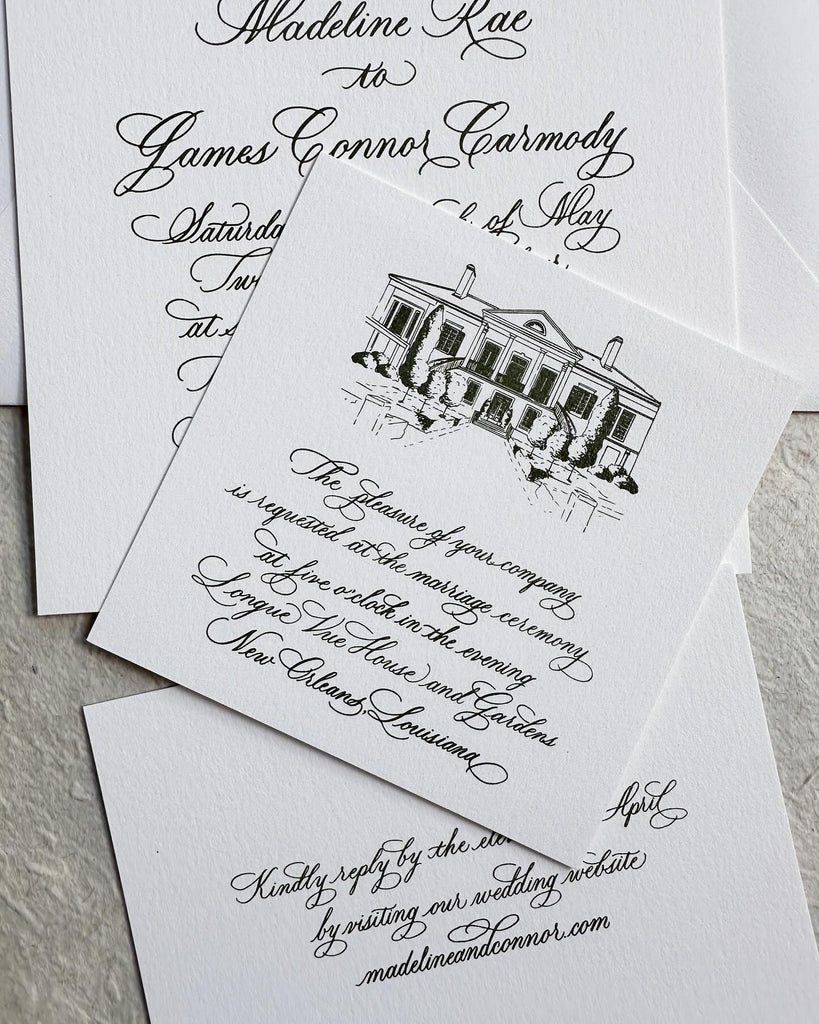 Madeline Rae
to
James Connor Carmody
of May
at
The pleasure of your company
is requested at the marriage ceremony
at five o'clock in the evening
Longue Vue House and Gardens
New Orleans, Louisiana
Kindly reply by the April
by visiting our wedding website
madelineandconnor.com